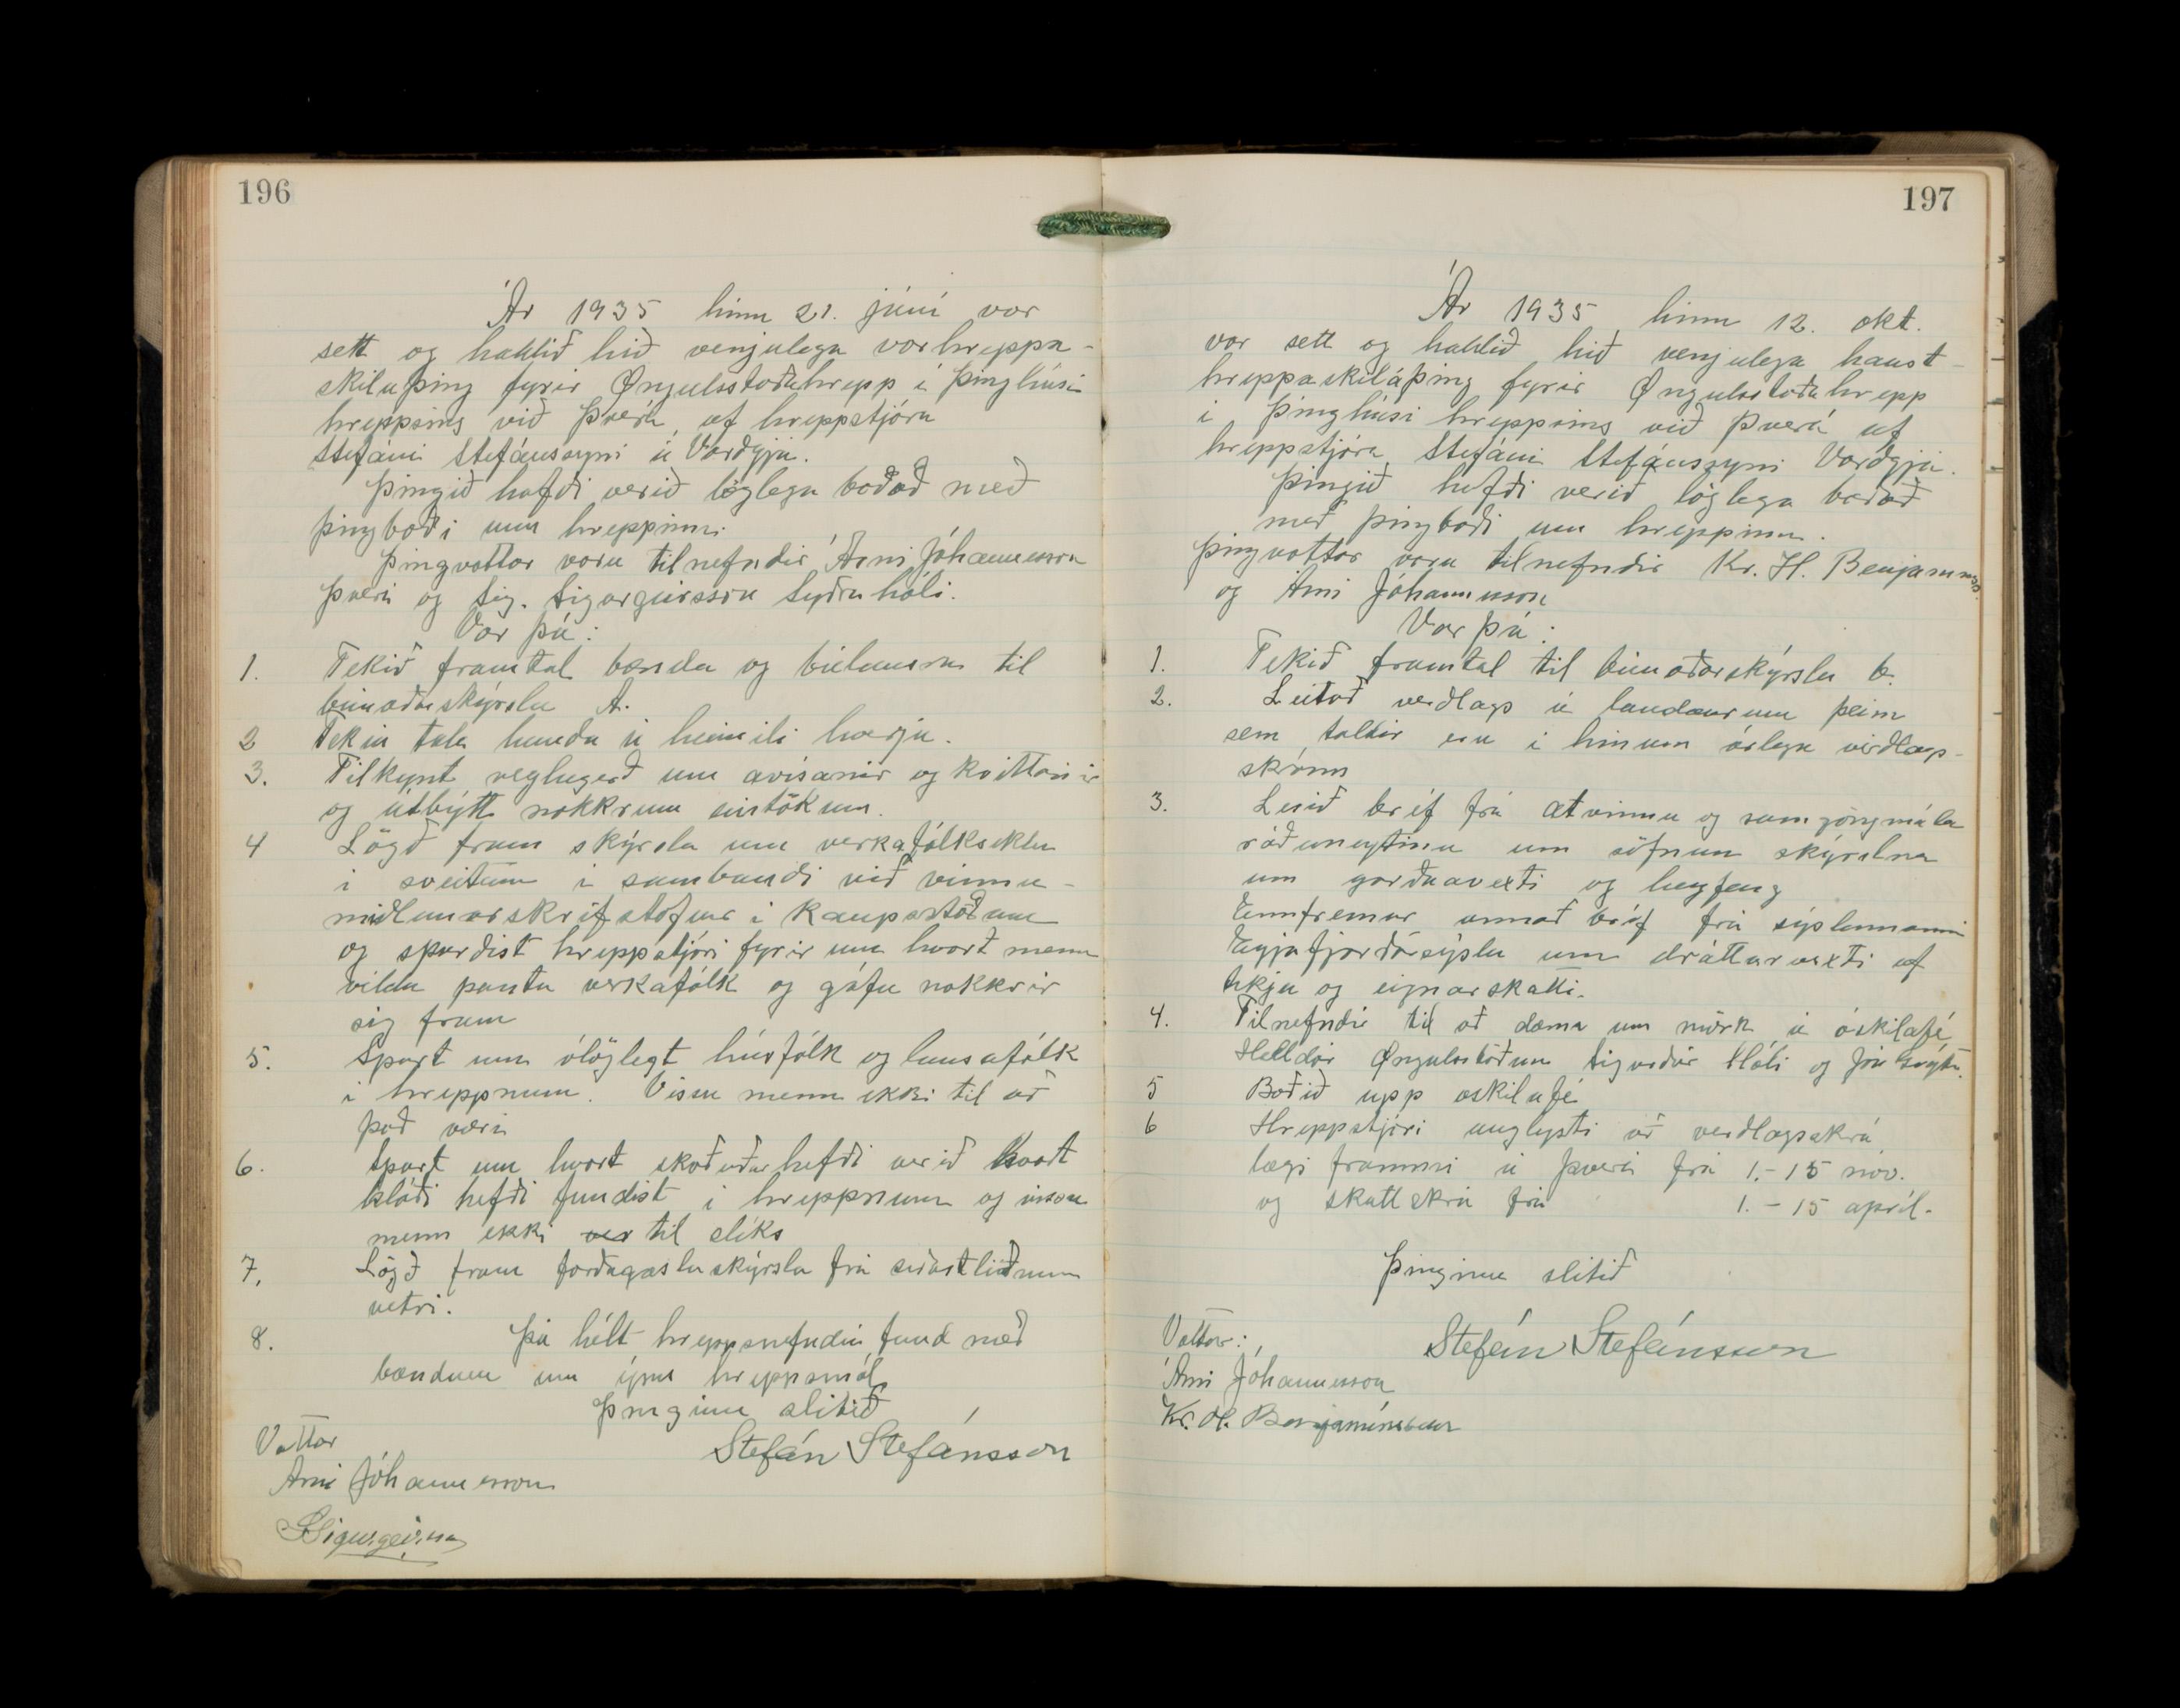 196
Ár 1935 hinn 21. júní var
sett og haldið hið venjulega vorhreppa-
skilaþing fyrir Öngulsstaðahrepp í þinghúsi
hreppsins við Þverá, af hreppstjóra
Stefáni Stefánssyni á Varðgjá.
Þingið hafði verið löglega boðað með
þingboði um hreppinn.
Þingvottar voru tilnefndir Árni Jóhannesson
Þverá og Sig. Sigurgeirsson Syðrahóli.
Var þá:
1. Tekið framtal bænda og búlausra til
búnaðarskýrslu A.
2 Tekin tala hunda á heimili hverju.
3. Tilkynt reglugerð um ávísanir og kvittanir
og útbýtt nokkrum eintökum.
4 Lögð fram skýrsla um verkafólkseklu
í sveitum í sambandi við vinnu-
miðlunarskrifstofur í kaupstöðum
og spurðist hreppstjóri fyrir um hvort menn
vildu panta verkafólk og gáfu nokkrir
sig fram
5. Spurt um ólöglegt húsfólk og lausafólk
í hreppnum. Vissu menn ekki til að
það væri
6. Spurt um hvort skoðaðar hefði verið hvort
kláði hefði fundist í hreppnum og vissu
menn ekki ver til slíks
7. Lögð fram forðagæsluskýrsla frá síðastliðnum
vetri.
8. Þá hélt hreppsnefndin fund með
bændum um ýms hreppsmál
Þinginu slitið
Stefán Stefánsson
Vottar
Árni Jóhannesson
S Sigurgeirsson
197
Ár 1935 hinn 12. okt.
var sett og haldið hið venjulega haust-
hreppaskilaþing fyrir Öngulsstaðahrepp
í þinghúsi hreppsins við Þverá af
hreppstjóra Stefáni Stefánssyni Varðgjá.
Þingið hefði verið löglega boðað
með þingboði um hreppinn.
Þingvottar voru tilnefndir Kr. H. Benjamínsson
og Árni Jóhannesson
Var þá:
1. Tekið framtal til búnaðarskýrslu b.
2. Leitað verðlags á landaurum þeim
sem taldir eru í hinum árlegu verðlags-
skrám
3. Lesið bréf frá atvinnu og samgöngmála
ráðuneytinu um söfnun skýrslna
um garðaávexti og heyfeng
Ennfremur annað bréf frá sýslumanni
Eyjafjarðarsýslu um dráttarvexti af
tekju og eignarskatti.
4. Tilnefndir til að dæma um mörk á óskilafé
Halldór Öngulsstöðum Sigurður Hóli og Jón Grýtu.
5 Boðið upp óskilafé
6 Hreppstjóri auglýsti að verðlagsskrá
lægi frammi á Þverá frá 1.-15 nóv.
og skattskrá frá 1.-15 apríl.
Þinginu slitið
Stefán Stefánsson
Vottar:
Árni Jóhannesson
Kr. H. Benjamínsson